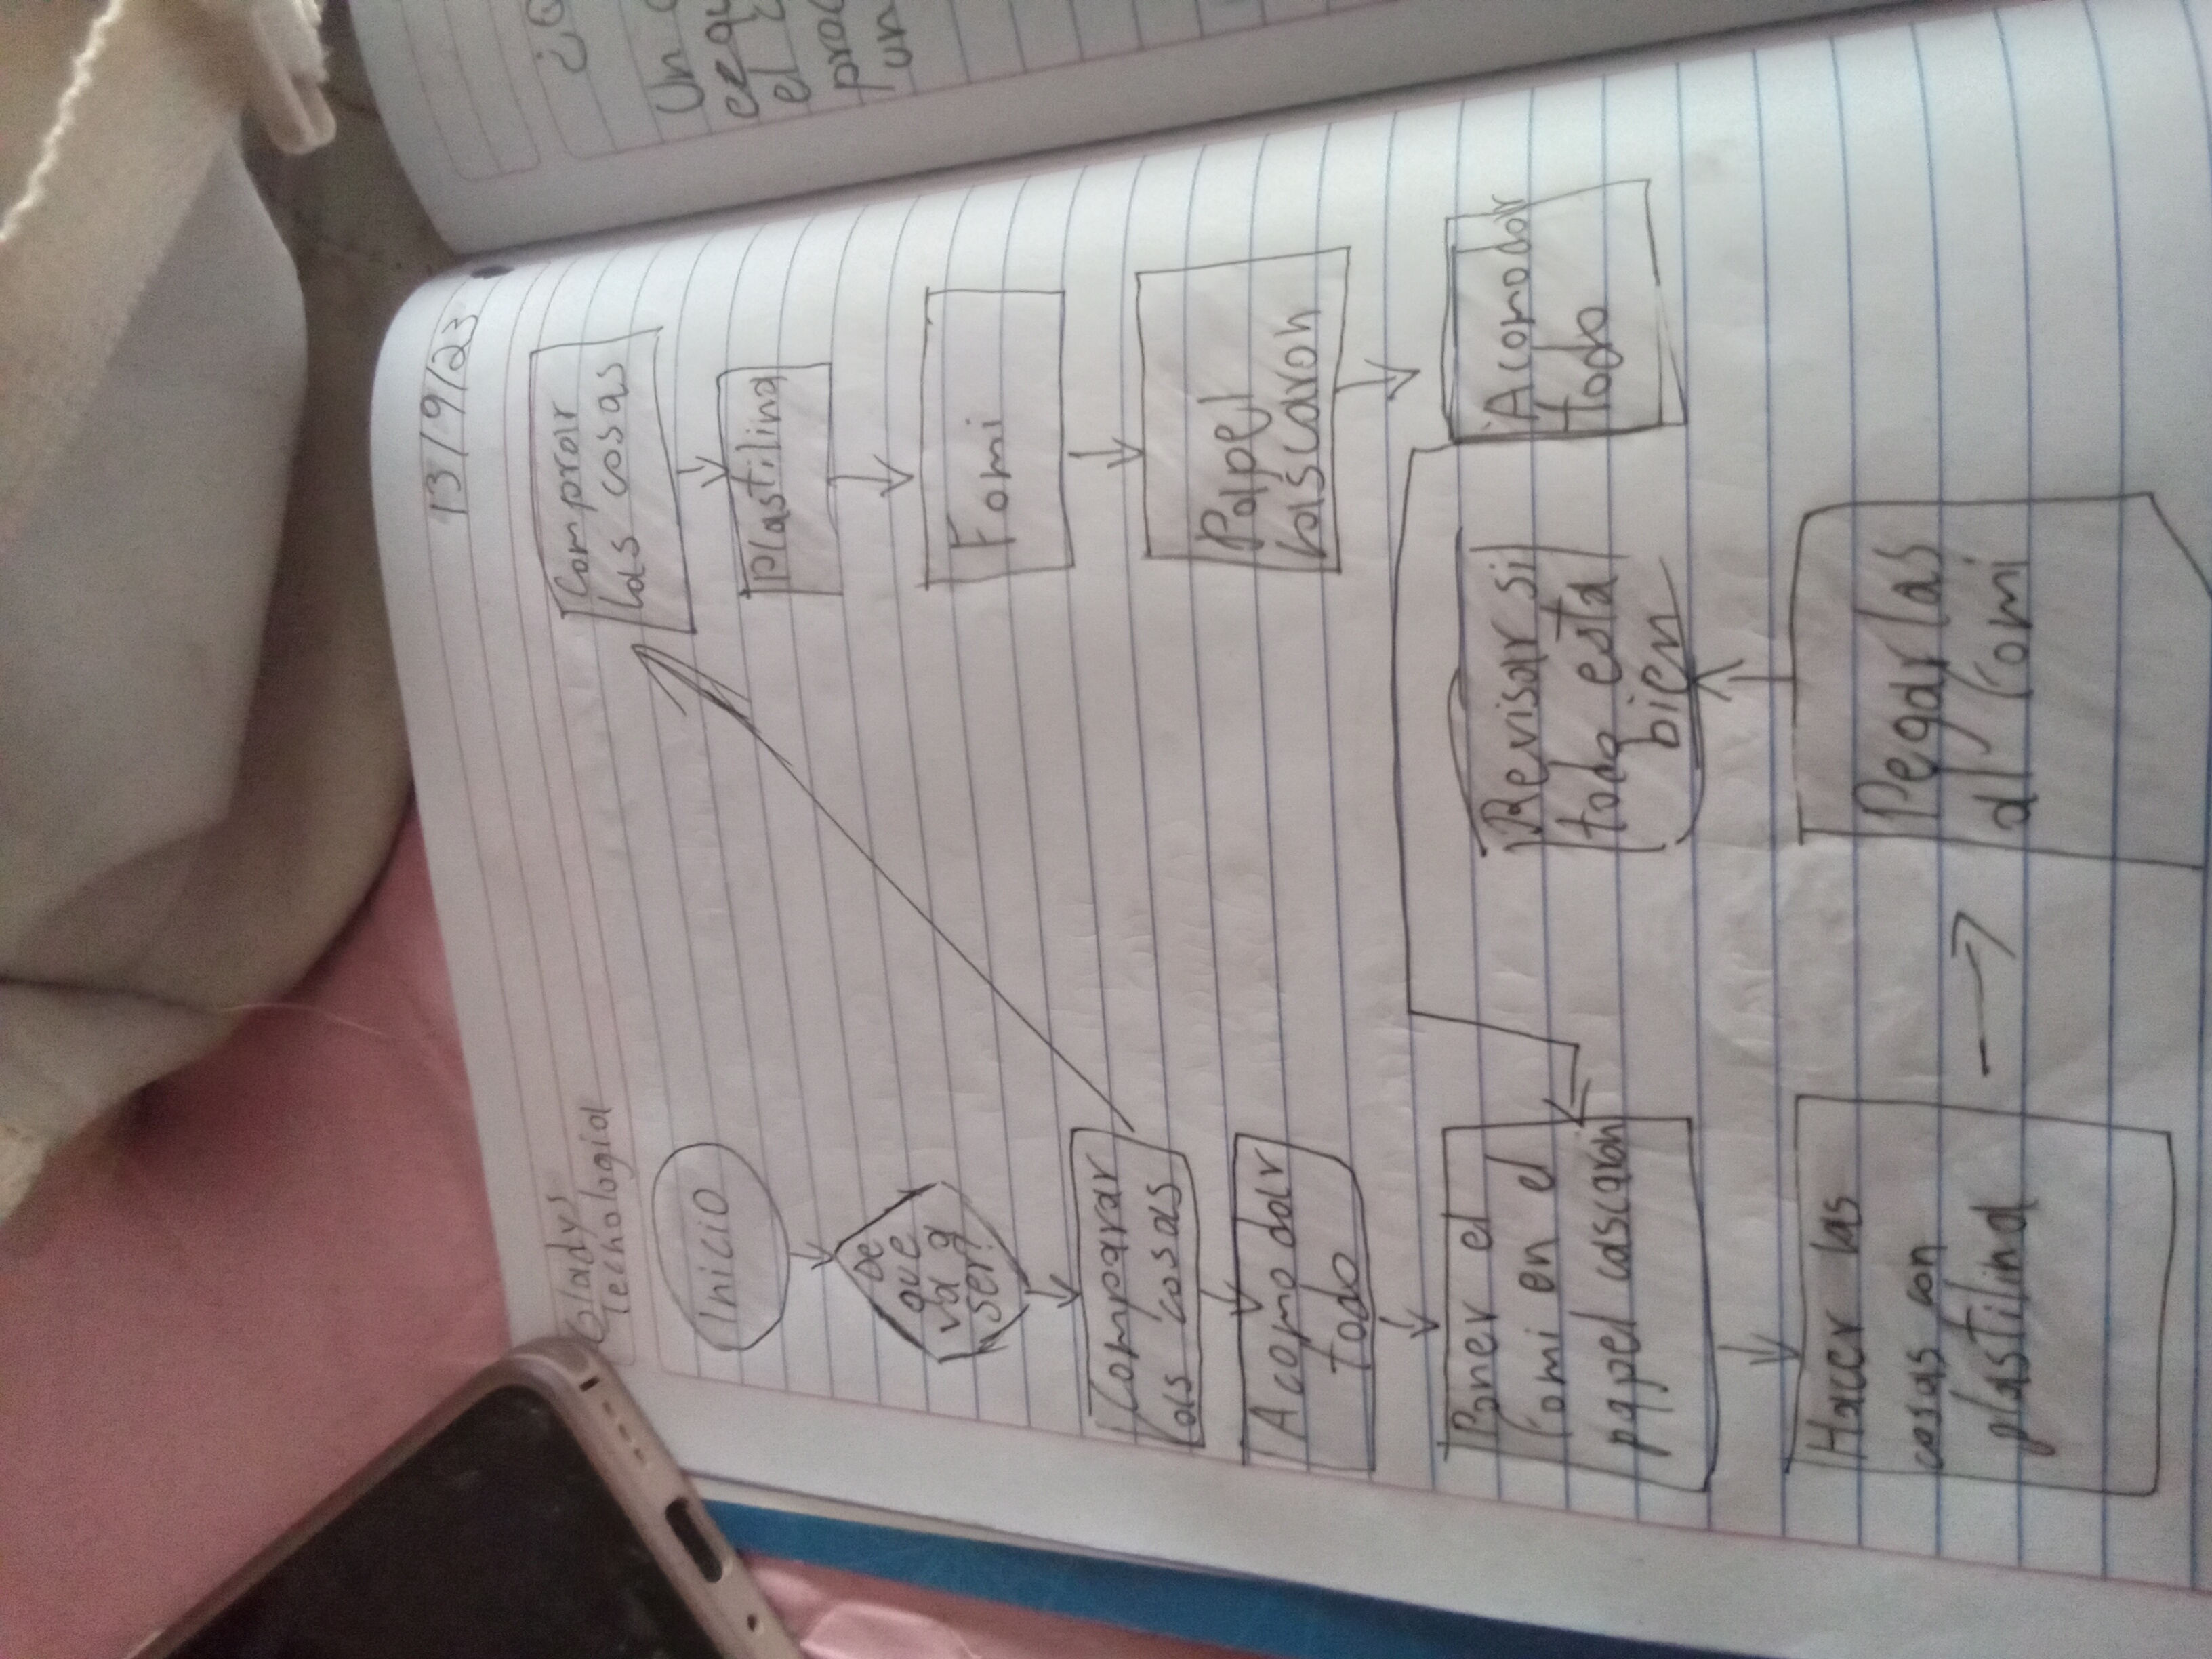 13/9/23
Gladys
Technologia
Inicio
De
que
va a
ser?
Comparar
las cosas
Acomodar
todo
Poner el
fomi en el
papel cascaron
Hacer las
cosas con
plastilina
Comprar
las cosas
Plastilina
Fomi
Papel
cascaron
Acomodar
todo
Revisar si
todo esta
bien
Pegar las
al fomi
Un
el